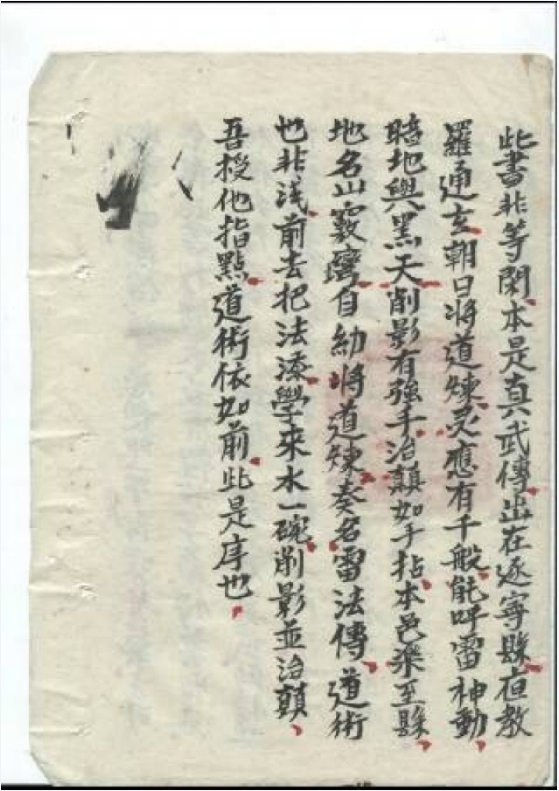 此書非等閑本是真武傳出在遂寧縣夜教
羅通玄朝日將道煉灵應有千般能呼雷神動
暗地與黑天削影有強手治顛如手拈本邑樂至縣
地名山藪灣自幼將道煉奏名雷法傳道術
也非浅前去把法添學來水一碗削影並治顛
吾授他指點道術依如前此是序也